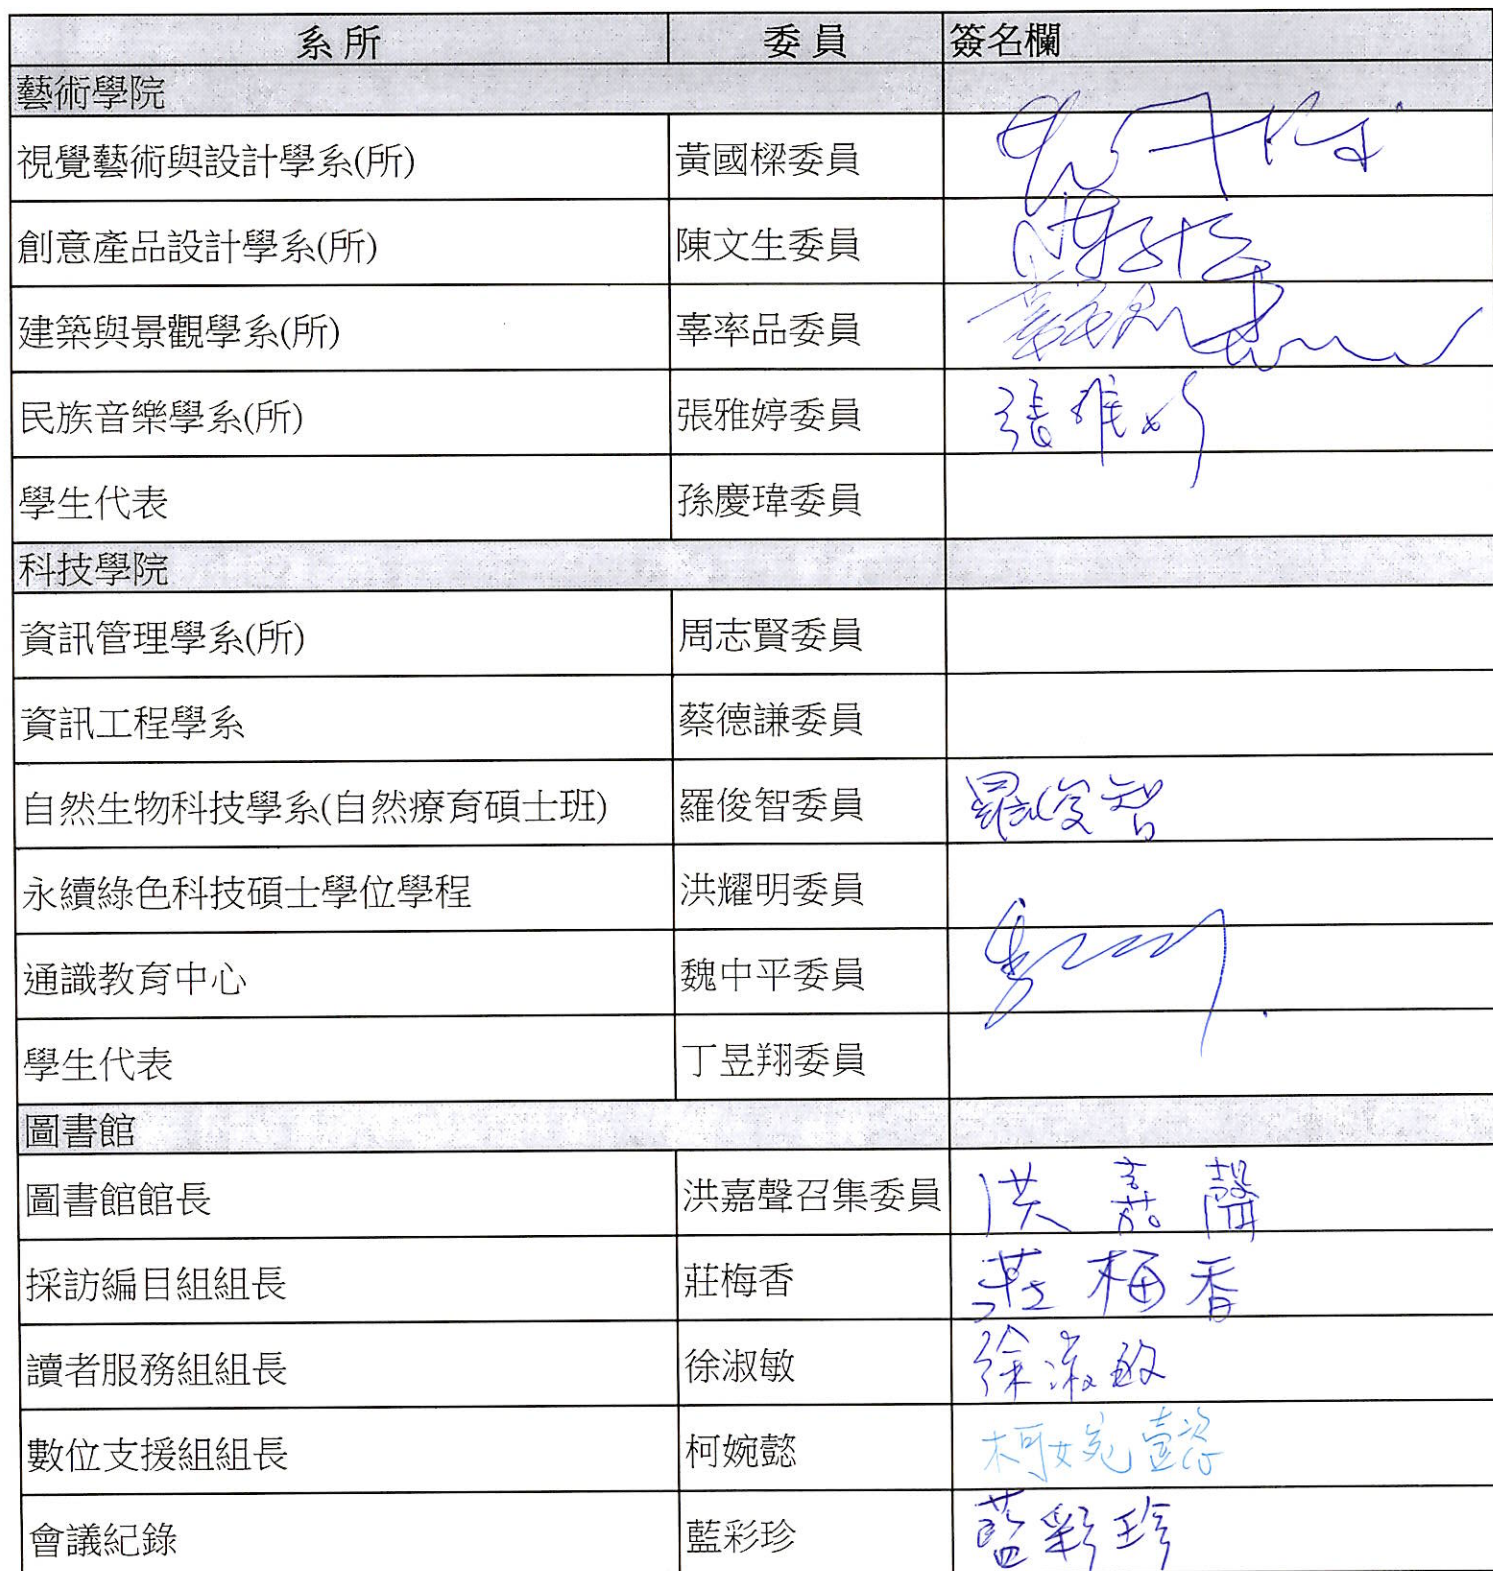 系所 委員 簽名欄
藝術學院
視覺藝術與設計學系(所) 黃國樑委員
創意產品設計學系(所) 陳文生委員
建築與景觀學系(所) 辜率品委員
民族音樂學系(所) 張雅婷委員 張雅
學生代表 孫慶瑋委員
科技學院
資訊管理學系(所) 周志賢委員
資訊工程學系 蔡德謙委員
自然生物科技學系(自然療育碩士班) 羅俊智委員 羅俊智
永續綠色科技碩士學位學程 洪耀明委員
通識教育中心 魏中平委員
學生代表 丁昱翔委員
圖書館
圖書館館長 洪嘉聲召集委員 洪嘉聲
採訪編目組組長 莊梅香 莊梅香
讀者服務組組長 徐淑敏 徐淑敏
數位支援組組長 柯婉懿 柯婉懿
會議紀錄 藍彩珍 藍彩珍